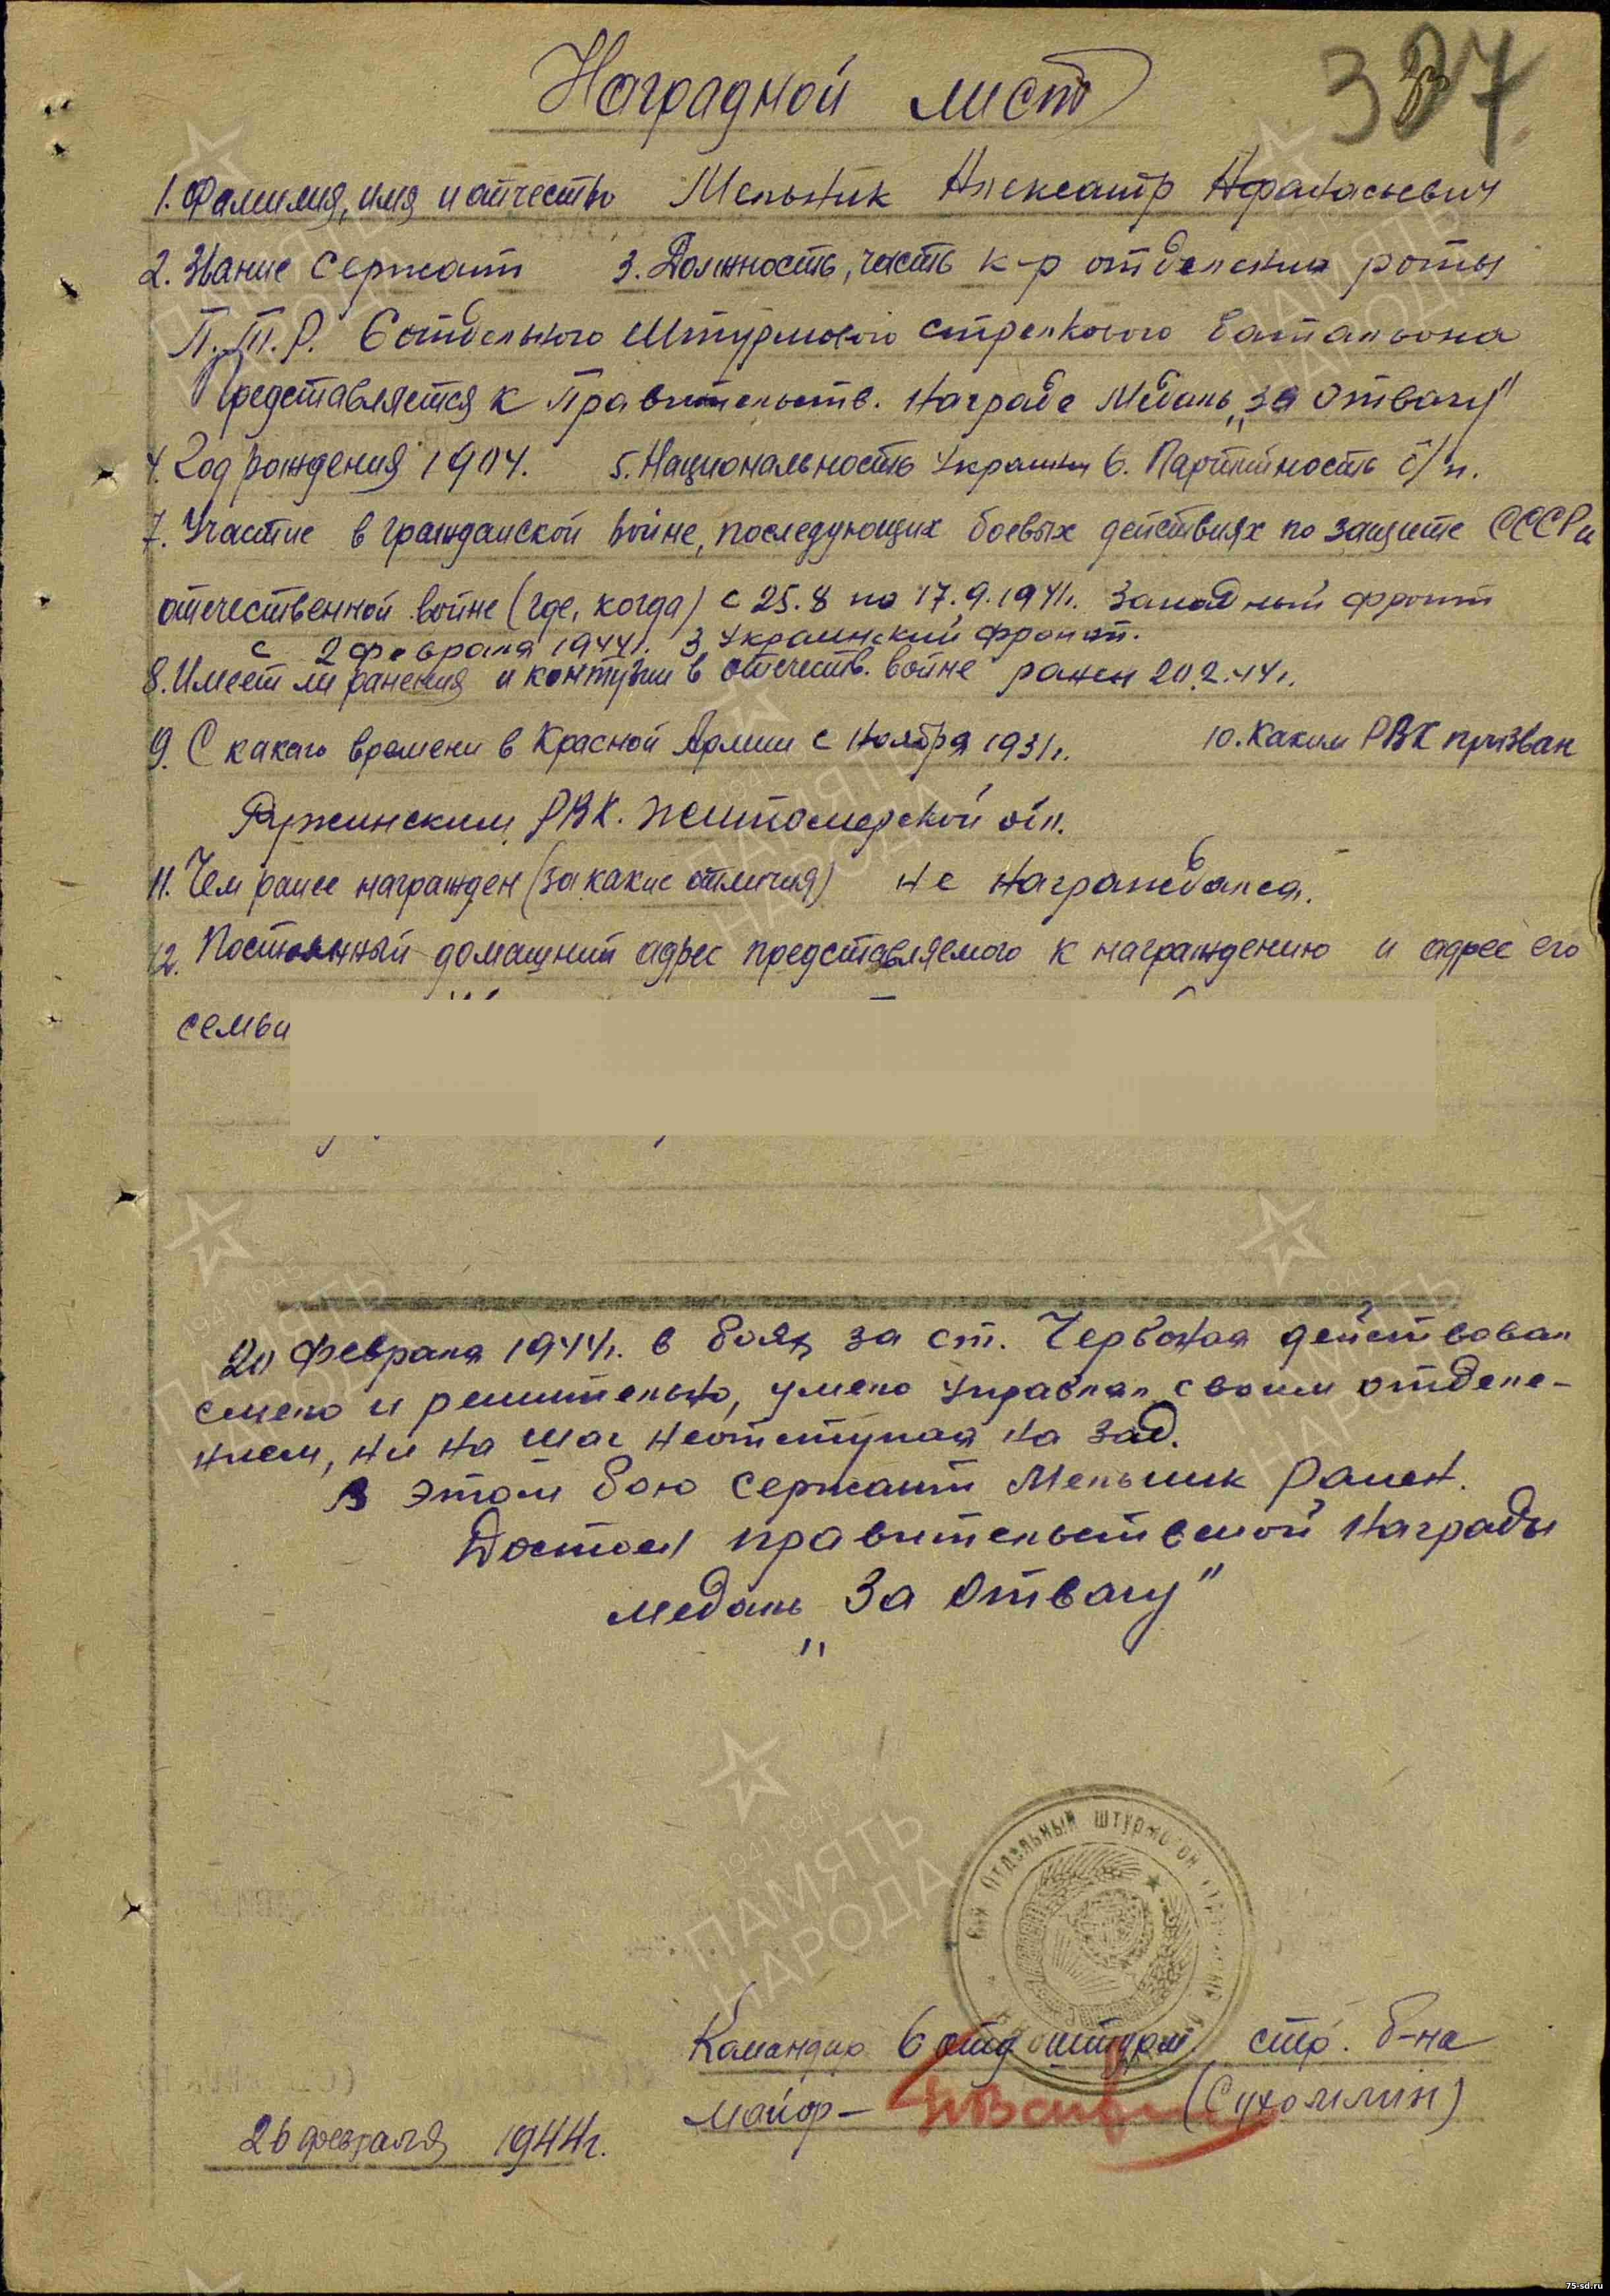 Наградной лист
337
1. Фамилия, имя и отчество Мельник Александр Афанасьевич
2. Звание сержант 3. Должность, часть к-р отделения роты
П.Т.Р. 6 отдельного штурмового стрелкового батальона
Представляется к Правительств. награде Медаль „за отвагу"
4. Год рождения 1904. 5. Национальность украинец 6. Партийность б/п.
7. Участие в гражданской войне, последующих боевых действиях по защите СССР и
отечественной войне (где, когда) с 25.8 по 17.9.1941г. Западный фронт
с 2 февраля 1944г. 3 Украинский фронт.
8. Имеет ли ранения и контузии в отечеств. войне ранен 20.2.44г.
9. С какого времени в Красной Армии с ноября 1931г. 10. Каким РВК призван
Ружинским РВК. Житомирской обл.
11. Чем ранее награжден (за какие отличия) не награждался.
12. Постоянный домашний адрес представляемого к награждению и адрес его
семьи
20 февраля 1944г. в боях за ст. Червоная действовал
смело и решительно, умело управлял своим отделе-
нием, ни на шаг неотступая на зад.
В этом бою сержант Мельник ранен.
Достоин правительственной награды
медаль „За отвагу"
6й отдельный штурмовой
Командир 6 отд штурм стр. б-на
майор – (Сухомлин)
26 февраля 1944г.
1941 1945
ПАМЯТЬ
НАРОДА
75-sd.ru